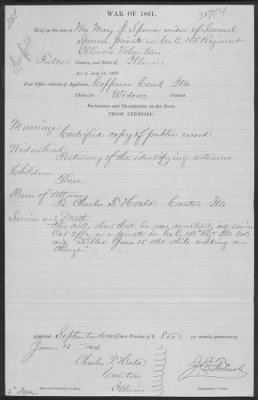 WAR OF 1861.
Brief in the case of Mrs Mary J. Spencer widow of Samuel
Spencer private in Co. E 103 Regiment
Illinois Volunteers
Fulton County, and State of Illinois
Act of July 14, 1862.
Post Office address of Applicant, Copperas Creek Ills
Claim for Widows Pension.
Declaration and Identification in due Form.
PROOF EXHIBITED.
Marriage
Certified copy of public record
Widowhood
Testimony of the identifying witnesses
Children
Three
Power of Attorney
to Charles P. Heald Canton Ills
Service and Death
The rolls show that he was mustered into service
Oct as a private in Co. E 103 Regt Ills Vols
and "Killed June 15 1864 while making a
charge"
Admitted September to a Pension of $8.00 per month, commencing
June 15" 1864
Charles P. Heald
Canton
Illinois